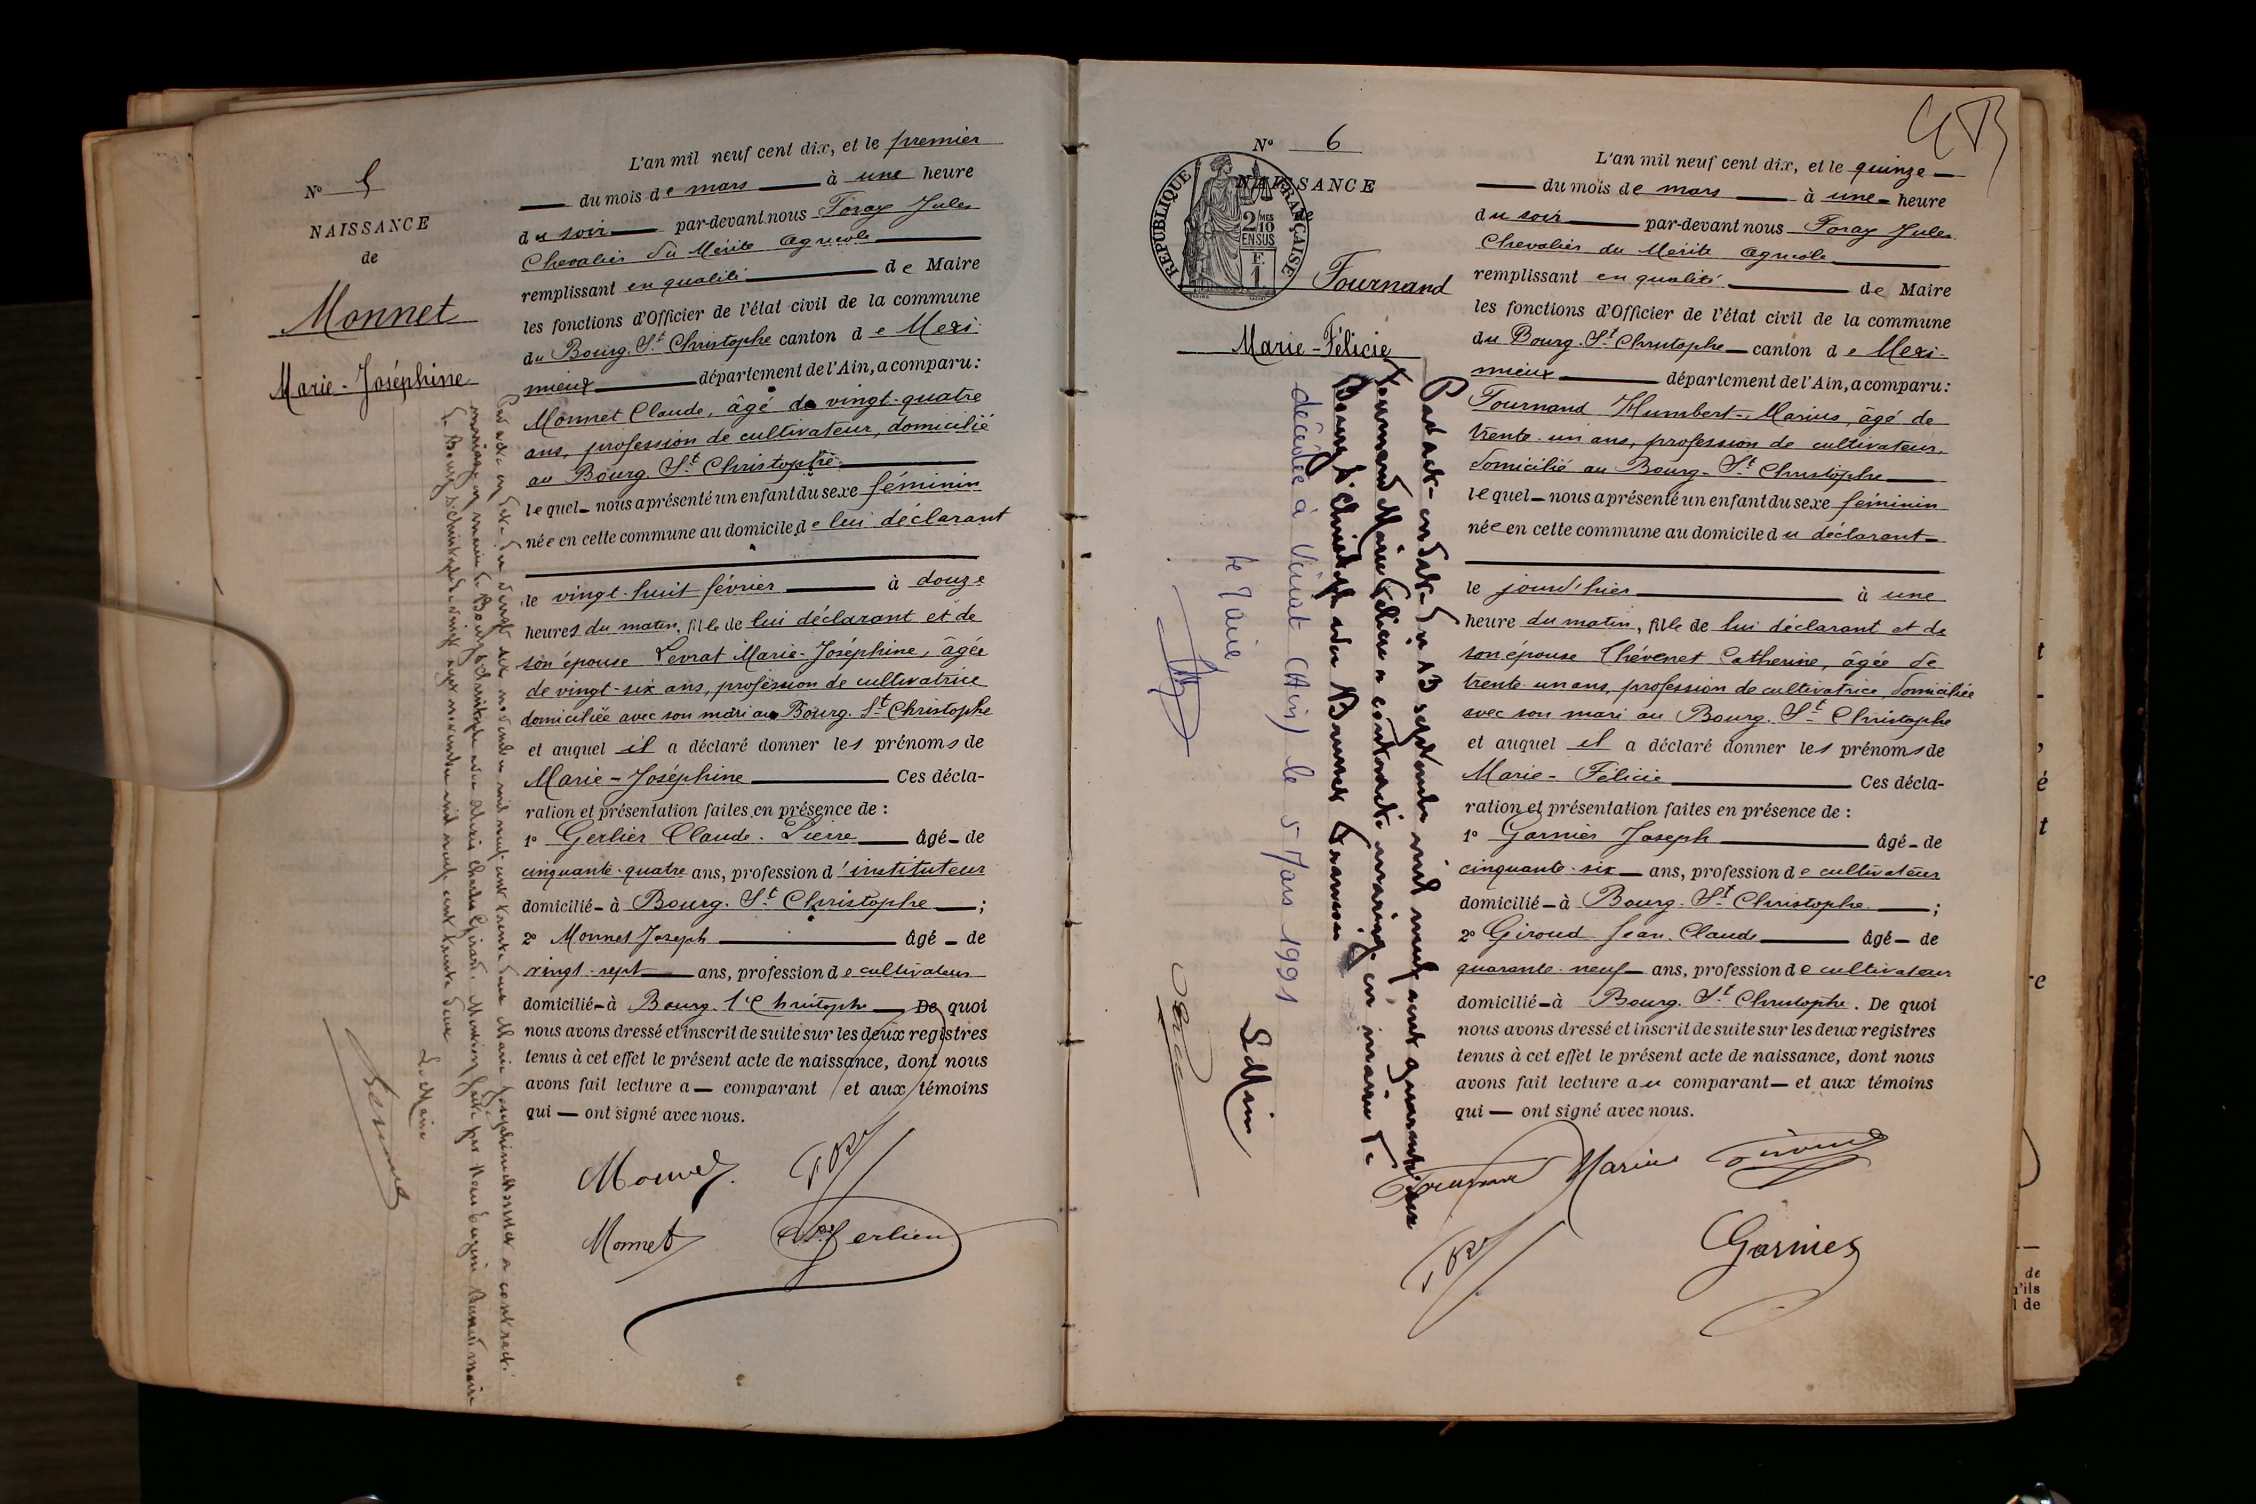 N° 5
NAISSANCE
de
Monnet
Marie-Joséphine
L'an mil neuf cent dix, et le premier
du mois de mars à une heure
du soir par-devant nous Foray Jules
Chevalier du Mérite agricole
remplissant en qualité de Maire
les fonctions d'Officier de l'état civil de la commune
du Bourg-St Christophe canton de Mexi-
mieux département de l'Ain, a comparu :
Monnet Claude, âgé de vingt-quatre
ans, profession de cultivateur, domicilié
au Bourg-St Christophe
lequel nous a présenté un enfant du sexe féminin
née en cette commune au domicile de lui déclarant
le vingt-huit février à douze
heures du matin, fille de lui déclarant et de
son épouse Levrat Marie-Joséphine, âgée
de vingt-six ans, profession de cultivatrice
domiciliée avec son mari au Bourg-St Christophe
et auquel il a déclaré donner les prénoms de
Marie-Joséphine Ces décla-
ration et présentation faites en présence de :
1° Gerlier Claude-Pierre âgé de
cinquante-quatre ans, profession d'instituteur
domicilié à Bourg-St Christophe ;
2° Monnet Joseph âgé de
vingt-sept ans, profession de cultivateur
domicilié à Bourg St Christophe De quoi
nous avons dressé et inscrit de suite sur les deux registres
tenus à cet effet le présent acte de naissance, dont nous
avons fait lecture a comparant et aux témoins
qui ont signé avec nous.
Monnet
Monnet Gerlier
Par acte en date du vingt six novembre mil neuf cent trente deux Marie Joséphine Monnet a contracté
mariage en mairie de Bourg St Christophe avec
le Bourg St Christophe le vingt sept novembre mil neuf cent trente deux
Le Maire
N° 6
NAISSANCE
de
RÉPUBLIQUE FRANÇAISE
2/10 MES
EN SUS
F.
1
Fournand
Marie-Félicie
Par acte en date du 13 septembre mil neuf cent quarante deux
Fournand Marie Félicie a contracté mariage en mairie de
Bourg St Christophe avec
Le Maire
décédée à Viriat (Ain) le 5 Mars 1991
Le Maire
L'an mil neuf cent dix, et le quinze
du mois de mars à une heure
du soir par-devant nous Foray Jules
Chevalier du Mérite agricole
remplissant en qualité de Maire
les fonctions d'Officier de l'état civil de la commune
du Bourg-St Christophe canton de Mexi-
mieux département de l'Ain, a comparu :
Fournand Humbert-Marius, âgé de
trente-un ans, profession de cultivateur,
domicilié au Bourg-St Christophe
lequel nous a présenté un enfant du sexe féminin
née en cette commune au domicile du déclarant
le jourd'hier à une
heure du matin, fille de lui déclarant et de
son épouse Thévenet Catherine, âgée de
trente-un ans, profession de cultivatrice, domiciliée
avec son mari au Bourg-St Christophe
et auquel il a déclaré donner les prénoms de
Marie-Félicie Ces décla-
ration et présentation faites en présence de :
1° Garnier Joseph âgé de
cinquante-six ans, profession de cultivateur
domicilié à Bourg-St Christophe ;
2° Giroud Jean-Claude âgé de
quarante-neuf ans, profession de cultivateur
domicilié à Bourg-St Christophe. De quoi
nous avons dressé et inscrit de suite sur les deux registres
tenus à cet effet le présent acte de naissance, dont nous
avons fait lecture au comparant et aux témoins
qui ont signé avec nous.
Fournand Marius Giroud
Garnier